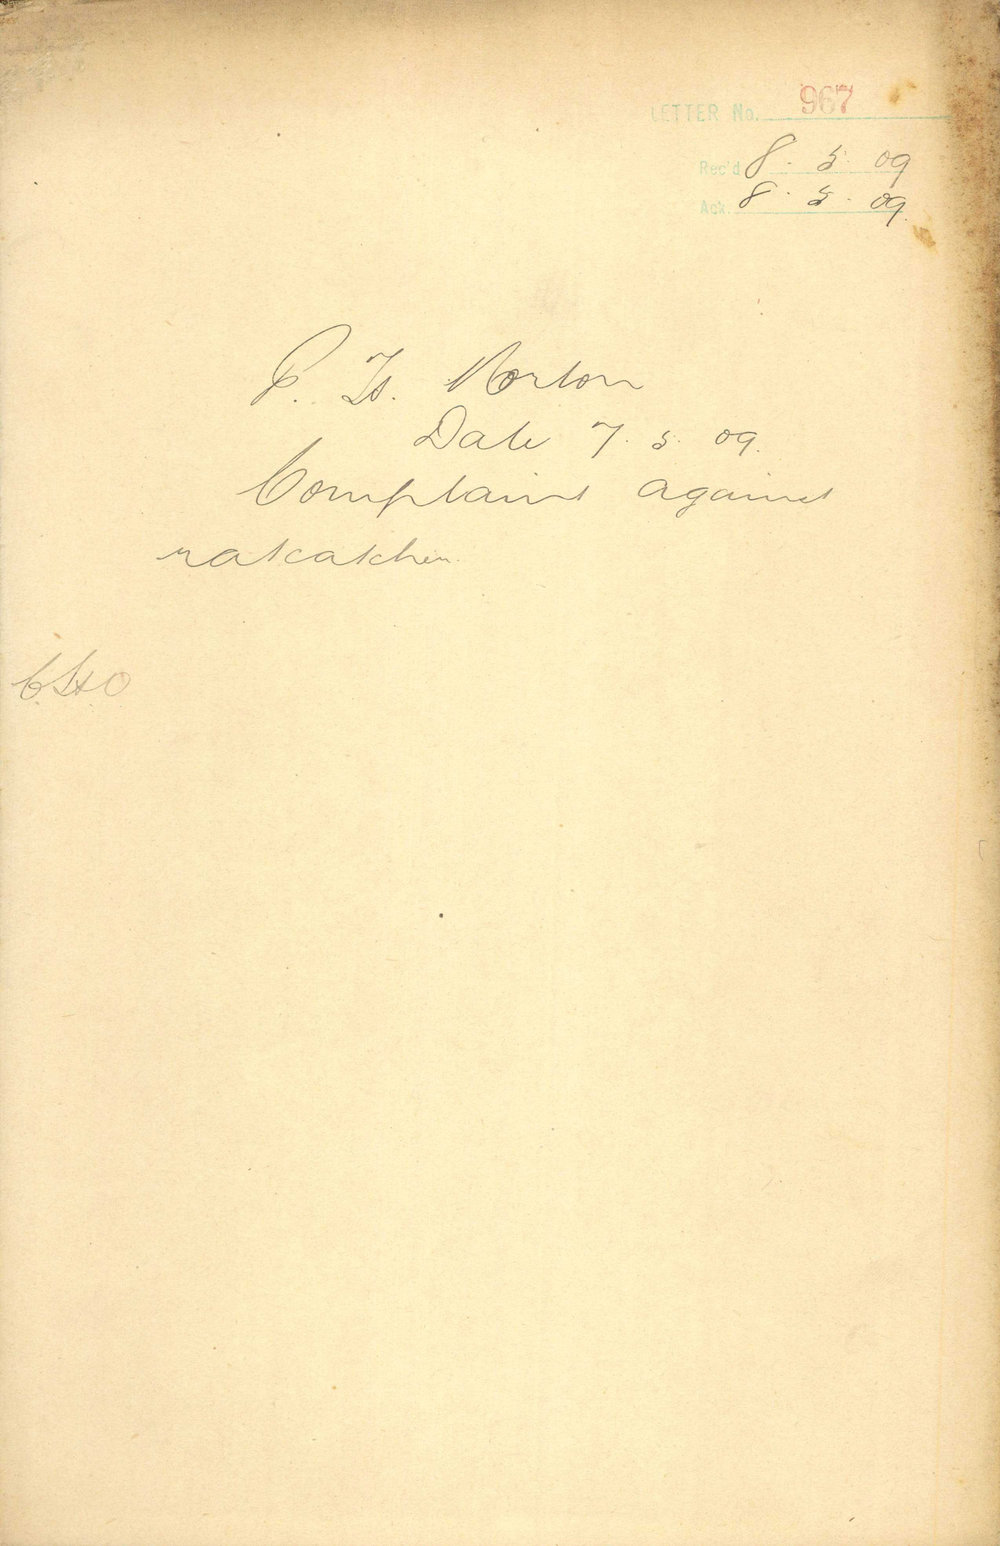 LETTER No. 967
Rec'd 8. 5. 09
Ack. 8. 5. 09.
P. H. Norton
Date 7. 5. 09.
Complaint against
ratcatcher.
CHO